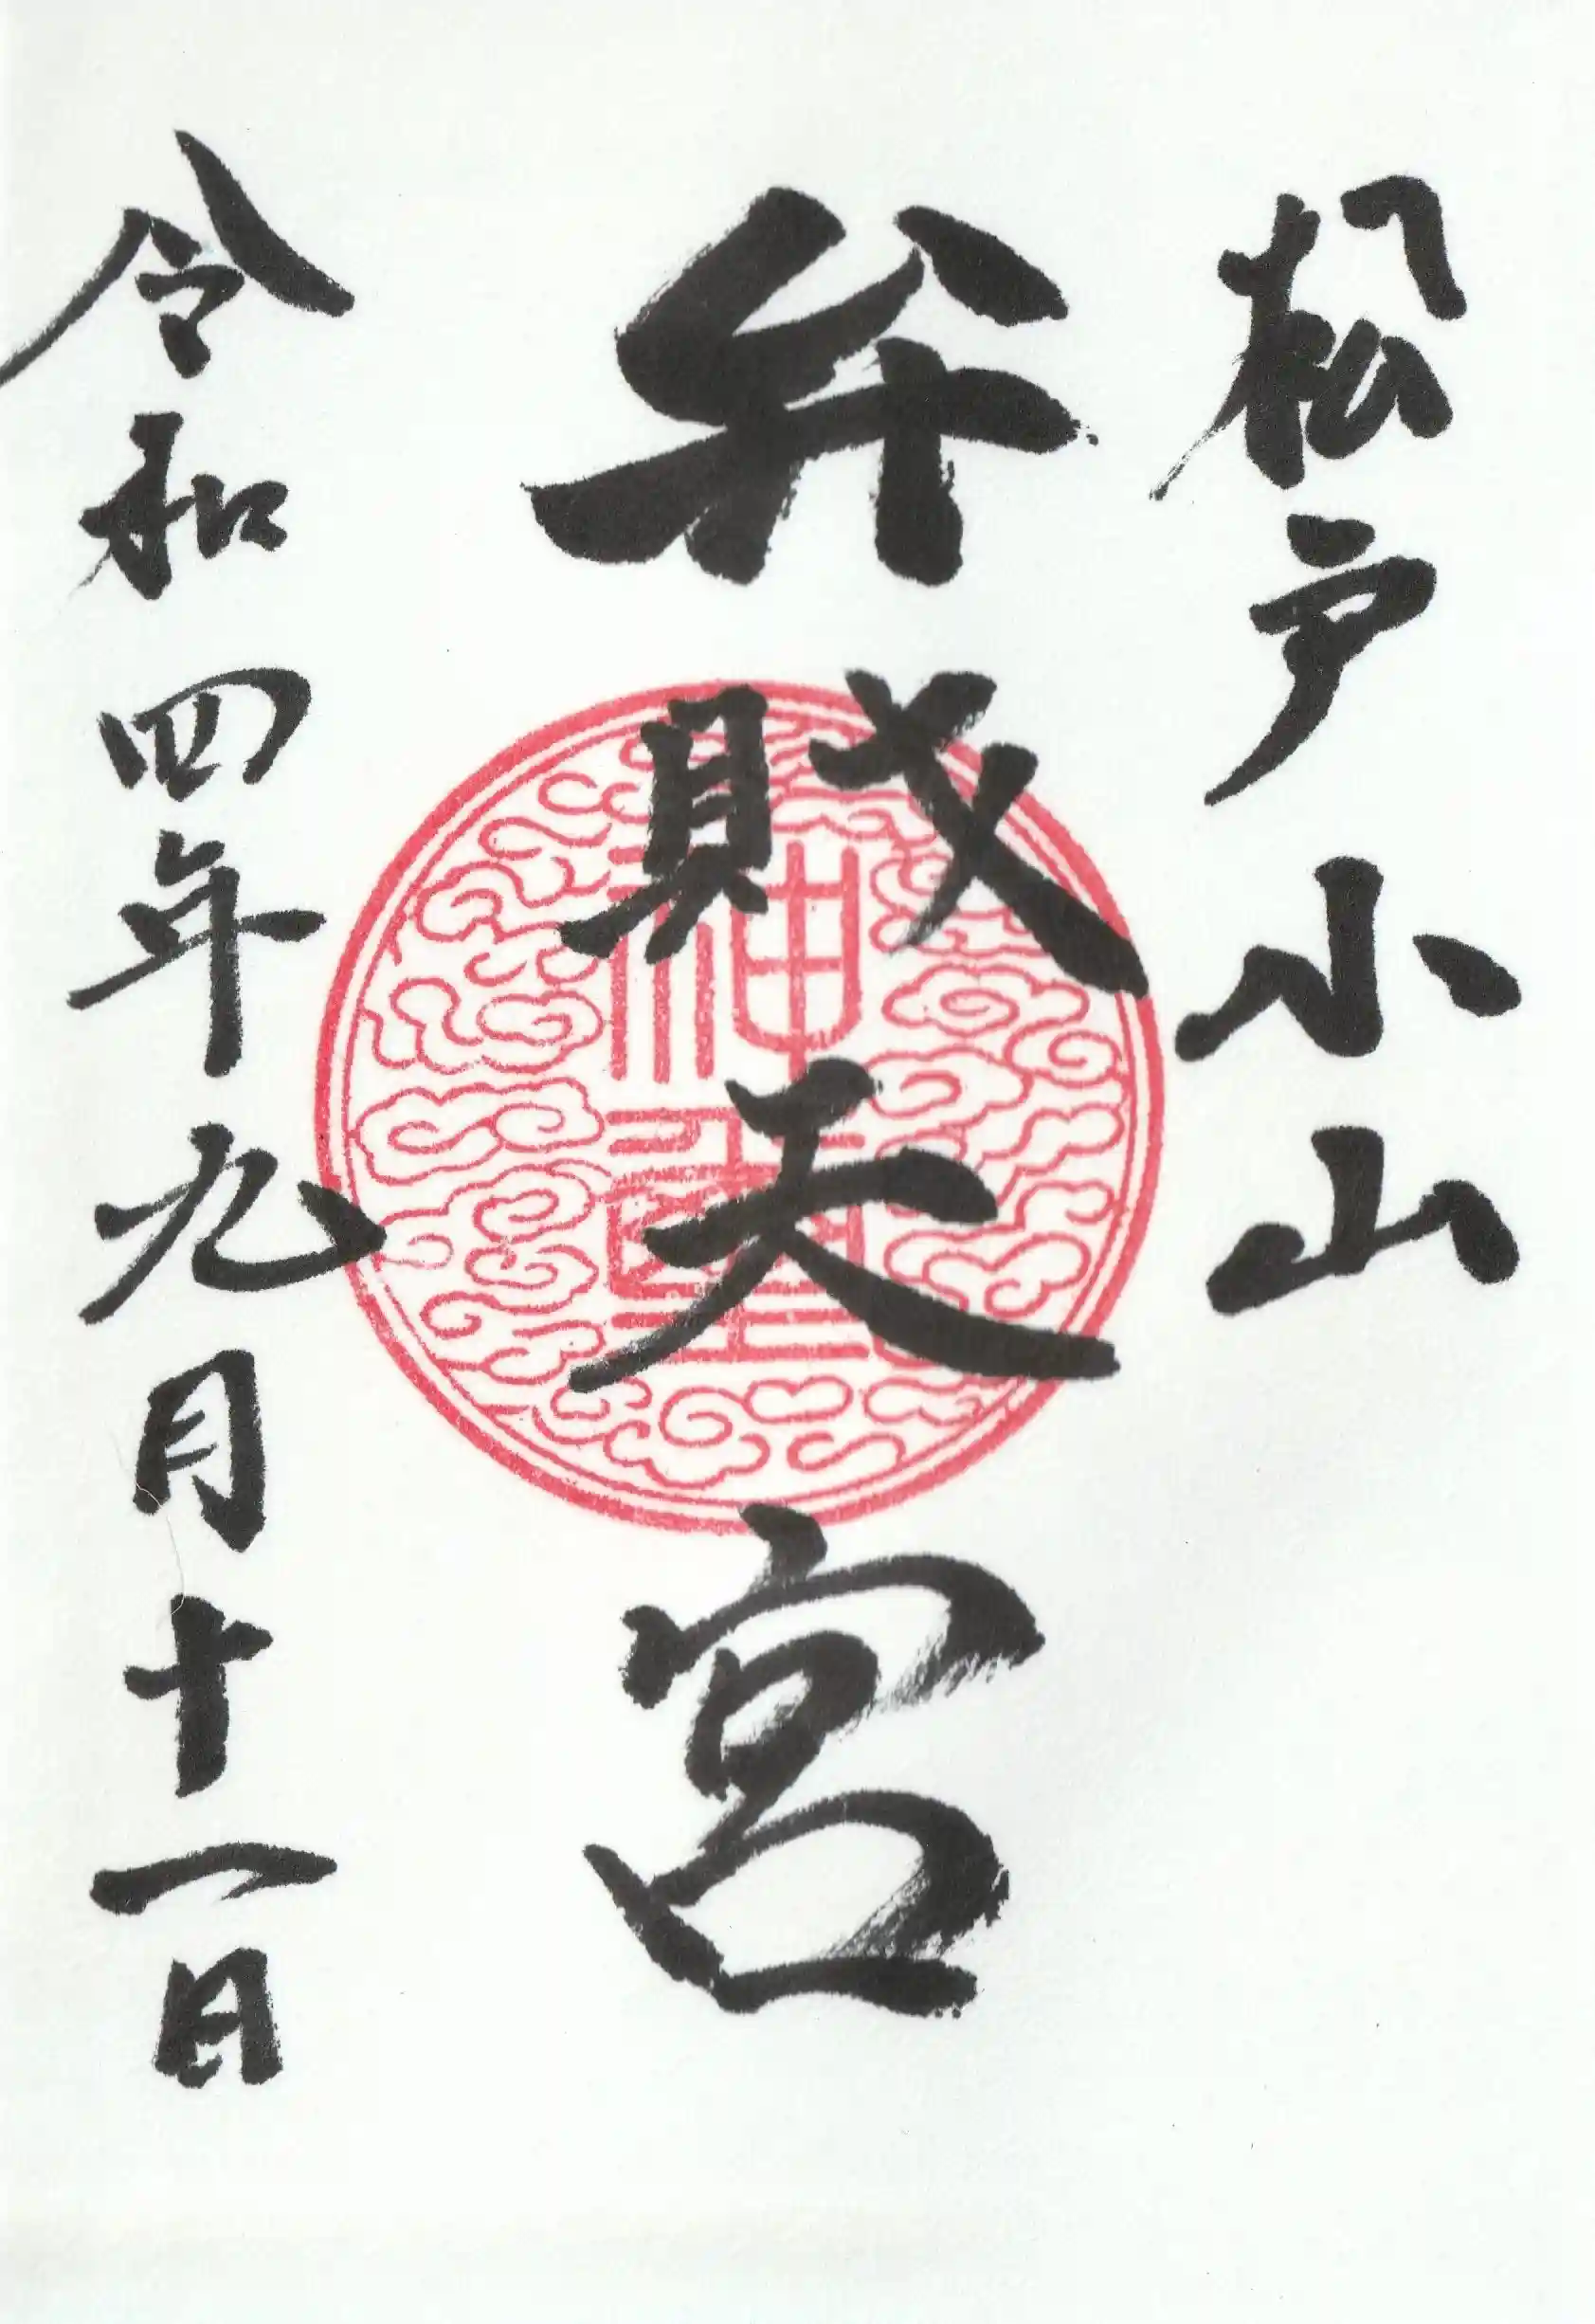 松戸小山
弁財天宮
令和四年九月十一日
神璽